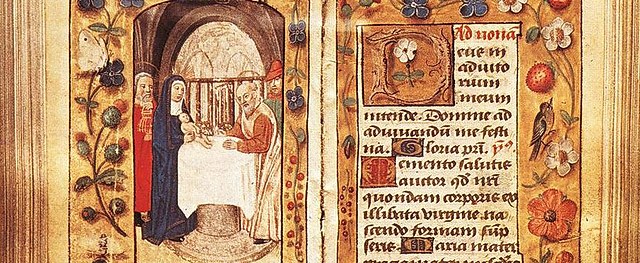 Ad nona.
Deus in
adiuto
rium
meum
intende. Domine ad
adiuuandū me festi
na. Gloria pri.
Memento salutis
auctor qd nrī
quondam corporis ex
illibata virgine na
scendo formam sūp
seris. Maria mater